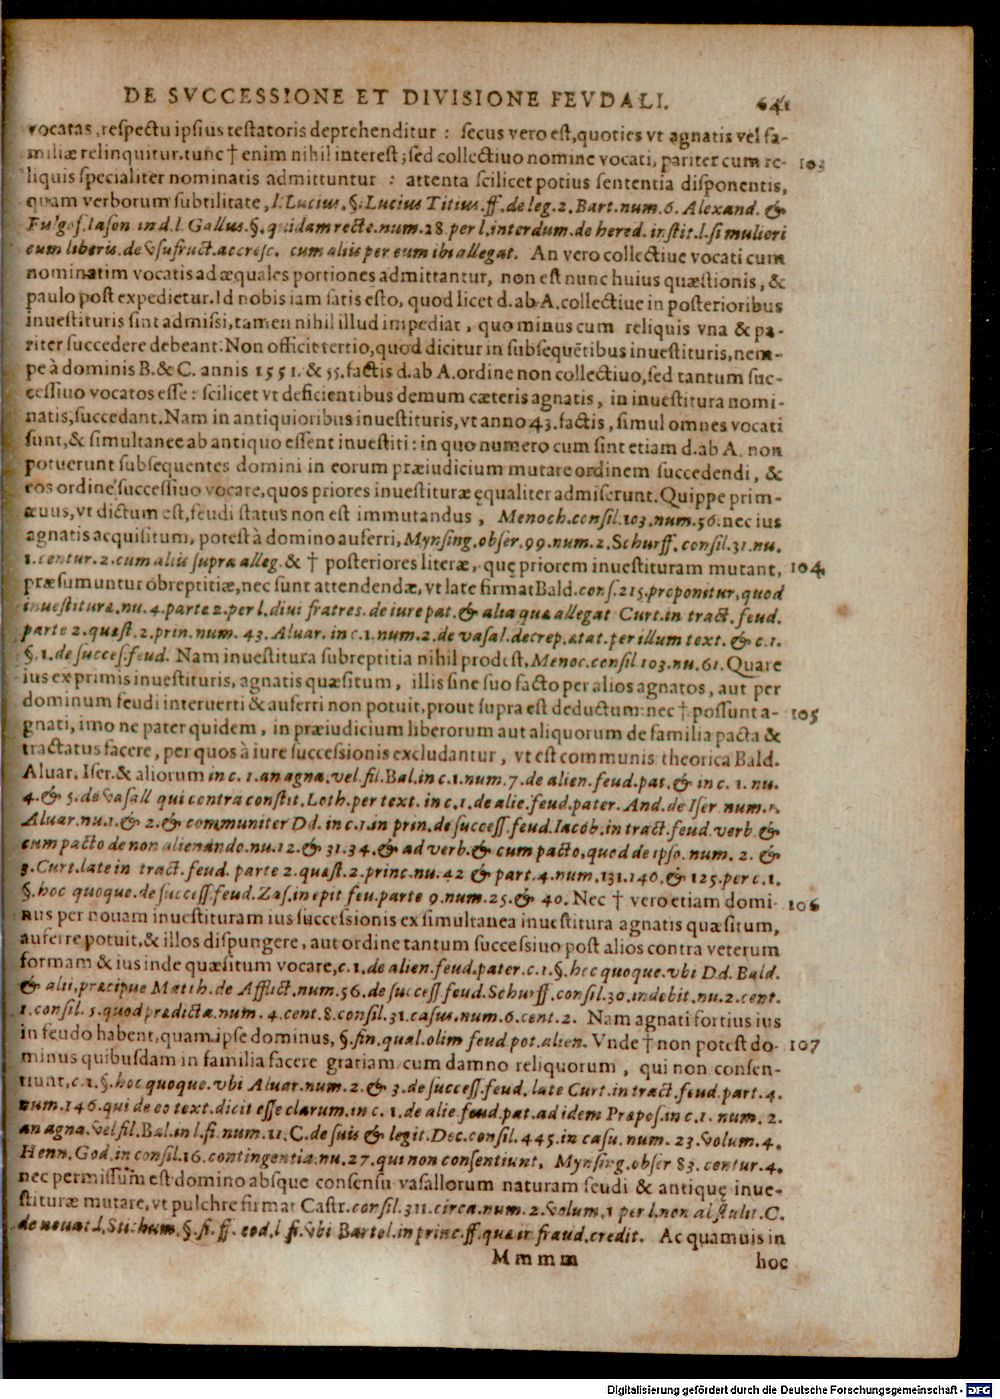 DE SVCCESSIONE ET DIVISIONE FEVDALI. 641
vocatas, respectu ipsius testatoris deprehenditur : secus vero est, quoties vt agnatis vel fa-
miliæ relinquitur. tunc † enim nihil interest; sed collectiuo nomine vocati, pariter cum re- 103
liquis specialiter nominatis admittuntur : attenta scilicet potius sententia disponentis,
quam verborum subtilitate, l. Lucius. §. Lucius Titius. ff. de leg. 2. Bart. num. 6. Alexand. &
Fulgos. Iason in d. l. Gallus §. quidam recte. num. 28. per l. interdum. de hered. instit. l. si mulieri
cum liberis. de vsufruct. accresc. cum aliis per eum ibi allegat. An vero collectiue vocati cum
nominatim vocatis ad æquales portiones admittantur, non est nunc huius quæstionis, &
paulo post expedietur. Id nobis iam satis esto, quod licet d. ab A. collectiue in posterioribus
inuestituris sint admissi, tamen nihil illud impediat, quo minus cum reliquis vna & pa-
riter succedere debeant. Non officit tertio, quod dicitur in subsequētibus inuestituris, nem-
pe à dominis B. & C. annis 1551. & 55. factis d. ab A. ordine non collectiuo, sed tantum suc-
cessiuo vocatos esse : scilicet vt deficientibus demum cæteris agnatis, in inuestitura nomi-
natis, succedant. Nam in antiquioribus inuestituris, vt anno 43. factis, simul omnes vocati
sunt, & simultanee ab antiquo essent inuestiti : in quo numero cum sint etiam d. ab A. non
potuerunt subsequentes domini in eorum præiudicium mutare ordinem succedendi, &
eos ordine successiuo vocare, quos priores inuestituræ ęqualiter admiserunt. Quippe prim-
æuus, vt dictum est, feudi status non est immutandus, Menoch. consil. 103. num. 56. nec ius
agnatis acquisitum, potest à domino auferri, Mynsing. obser. 99. num. 2. Schurff. consil. 31. nu.
1. centur. 2. cum aliis supra alleg. & † posteriores literæ, quę priorem inuestituram mutant, 104
præsumuntur obreptitiæ, nec sunt attendendæ, vt late firmat Bald. cons. 215. proponitur, quod
inuestitura. nu. 4. parte 2. per l. diui fratres. de iure pat. & alia quæ allegat Curt. in tract. feud.
parte 2. quæst. 2. prin. num. 43. Aluar. in c. 1. num. 2. de vasal. decrep. ætat. per illum text. & c. 1.
§. 1. de succes. feud. Nam inuestitura subreptitia nihil prodest, Menoc. consil 103. nu. 61. Quare
ius ex primis inuestituris, agnatis quæsitum, illis sine suo facto per alios agnatos, aut per
dominum feudi interuerti & auferri non potuit, prout supra est deductum: nec † possunt a- 105
gnati, imo ne pater quidem, in præiudicium liberorum aut aliquorum de familia pacta &
tractatus facere, per quos à iure successionis excludantur, vt est communis theorica Bald.
Aluar. Iser. & aliorum in c. 1. an agna. vel. fil. Bal. in c. 1. num. 7. de alien. feud. pat. & in c. 1. nu.
4. & 5. de vasall qui contra constit. Loth. per text. in c. 1. de alie. feud. pater. And. de Iser num.
Aluar. nu. 1. & 2. & communiter Dd. in c. 1. in prin. de success. feud. Iacob. in tract. feud. verb. &
cum pacto de non alienando. nu. 12. & 31. 34. & ad verb. & cum pacto, quod de ipso. num. 2. &
3. Curt. late in tract. feud. parte 2. quæst. 2. princ. nu. 42 & part. 4. num. 131. 140. & 125. per c. 1.
§. hoc quoque. de success. feud. Zas. in epit feu. parte 9. num. 25. & 40. Nec † vero etiam domi- 106
nus per nouam inuestituram ius successionis ex simultanea inuestitura agnatis quæsitum,
auferre potuit, & illos dispungere, aut ordine tantum successiuo post alios contra veterum
formam & ius inde quæsitum vocare, c. 1. de alien. feud. pater. c. 1. §. hoc quoque. vbi Dd. Bald.
& alii, præcipue Matth. de Afflict. num. 56. de success. feud. Schurff. consil. 30. indebit. nu. 2. cent.
1. consil. 5. quod prædicta. num. 4. cent. 8. consil. 31. casus. num. 6. cent. 2. Nam agnati fortius ius
in feudo habent, quam ipse dominus, §. fin. qual. olim feud. pot. alien. Vnde † non potest do- 107
minus quibusdam in familia facere gratiam cum damno reliquorum, qui non consen-
tiunt, c. 1. §. hoc quoque. vbi Aluar. num. 2. & 3. de success. feud. late Curt. in tract. feud. part. 4.
num. 146. qui de eo text. dicit esse clarum. in c. 1. de alie. feud. pat. ad idem Præpos. in c. 1. num. 2.
an agna. vel fil. Bal. in l. fi. num. 11. C. de suis & legit. Dec. consil. 445. in casu. num. 23. volum. 4.
Henn. God. in consil. 16. contingentia. nu. 27. qui non consentiunt, Mynsing. obser 83. centur. 4.
nec permissum est domino absque consensu vasallorum naturam feudi & antiquę inue-
stituræ mutare, vt pulchre firmat Castr. consil. 311. circa. num. 2. volum. 1 per l. non abstulit. C.
de nouat l. Stichum. §. fi. ff. eod. l fi. vbi Bartol. in princ. ff. quæ in fraud. credit. Ac quamuis in
M m m m hoc
Digitalisierung gefördert durch die Deutsche Forschungsgemeinschaft - DFG